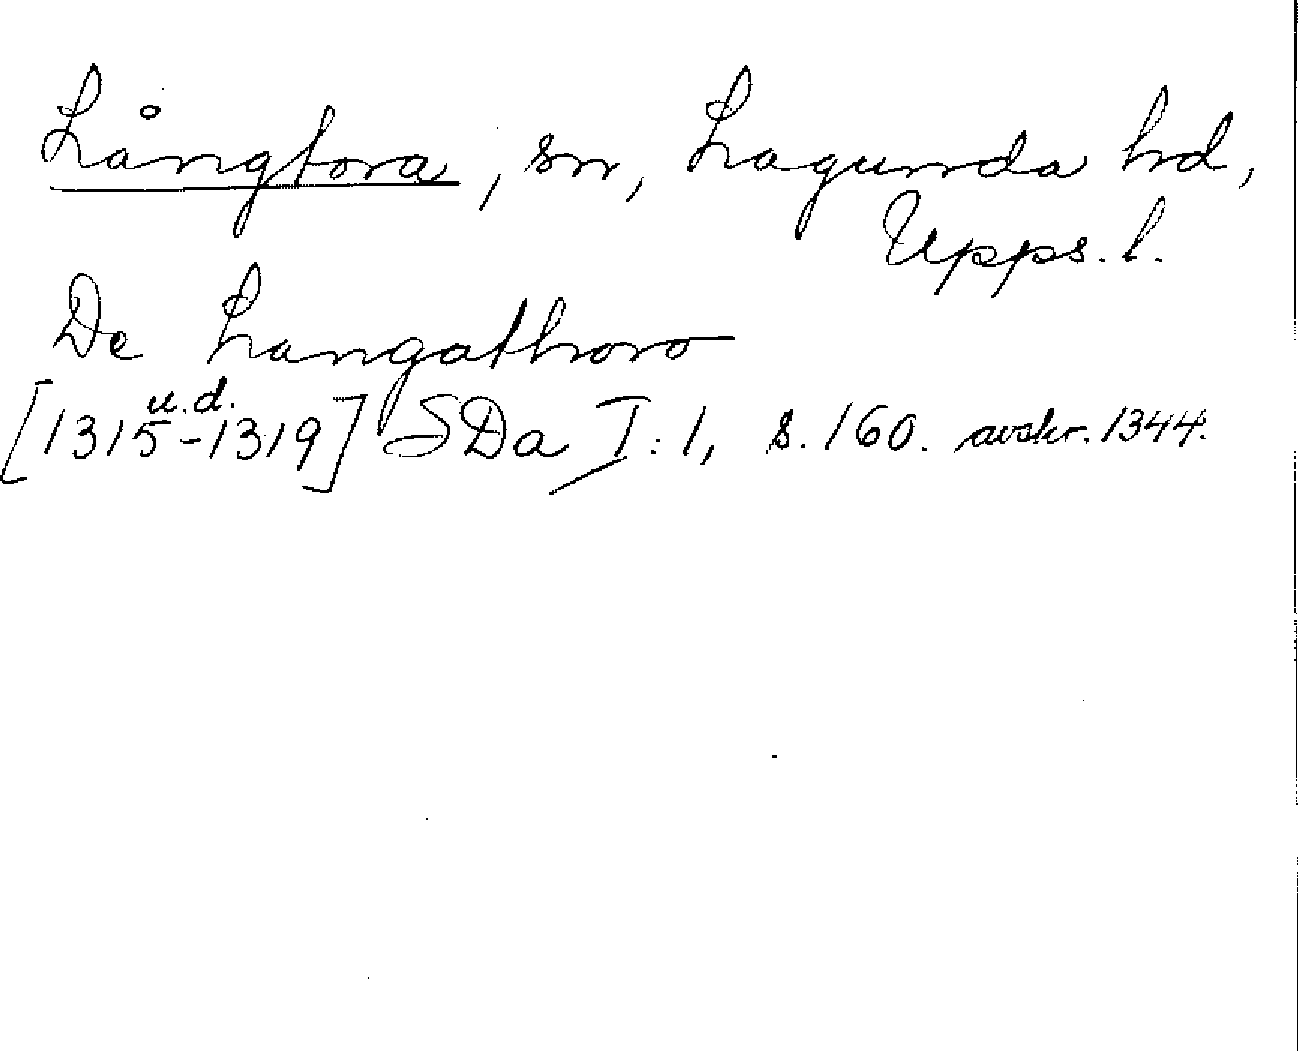 Långtora, sn, Lagunda hd,
Upps. l.
De Langathoro
u.d.
[1315-1319] SDa I:1, s. 160. avskr. 1344.